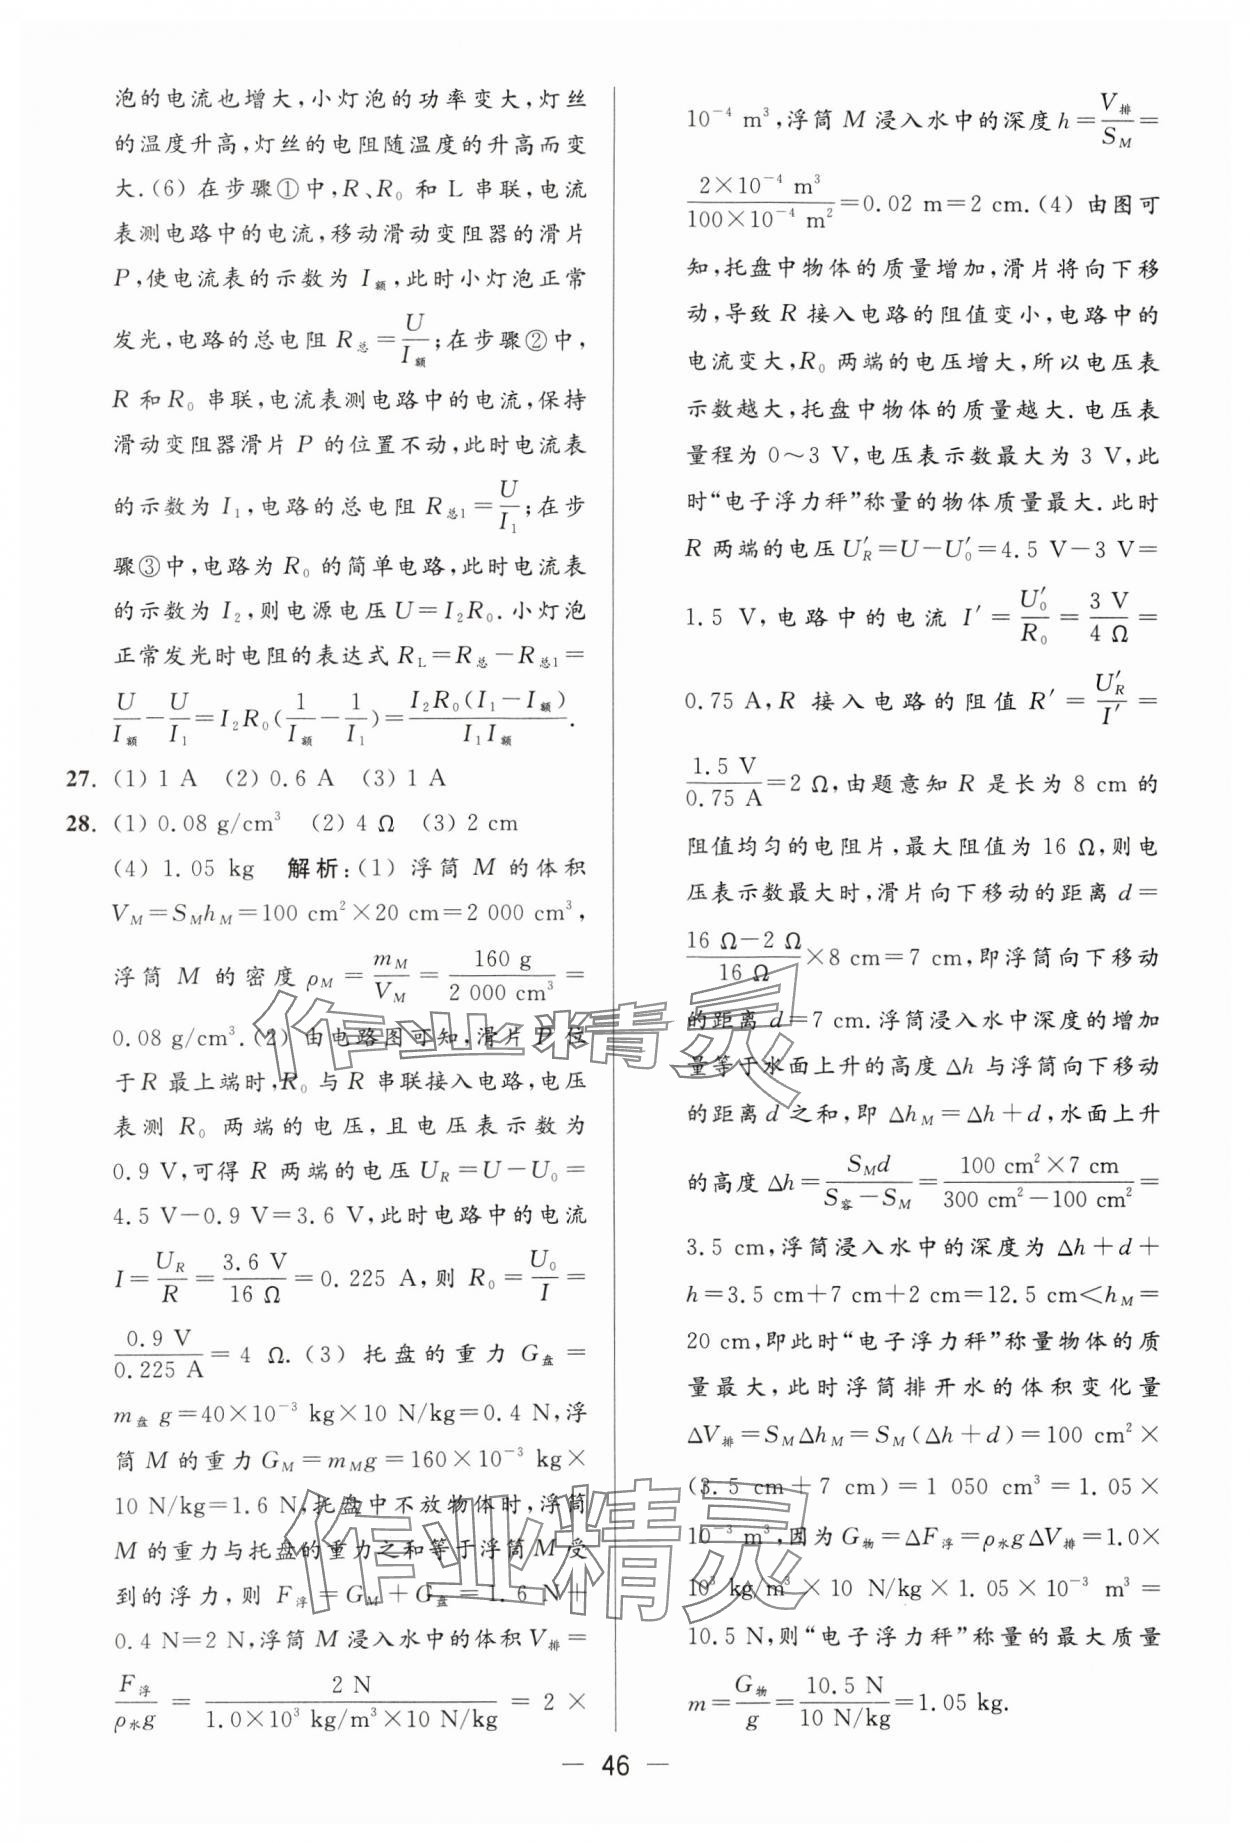 泡的电流也增大,小灯泡的功率变大,灯丝
的温度升高,灯丝的电阻随温度的升高而变
大.(6) 在步骤①中,R、R₀ 和 L 串联,电流
表测电路中的电流,移动滑动变阻器的滑片
P,使电流表的示数为 I额,此时小灯泡正常
发光,电路的总电阻 R总=U/I额;在步骤②中,
R 和 R₀ 串联,电流表测电路中的电流,保持
滑动变阻器滑片 P 的位置不动,此时电流表
的示数为 I₁,电路的总电阻 R总1=U/I₁;在步
骤③中,电路为 R₀ 的简单电路,此时电流表
的示数为 I₂,则电源电压 U=I₂R₀.小灯泡
正常发光时电阻的表达式 RL=R总-R总1=
U/I额-U/I₁=I₂R₀(1/I额-1/I₁)=I₂R₀(I₁-I额)/I₁I额.
27. (1) 1 A (2) 0.6 A (3) 1 A
28. (1) 0.08 g/cm³ (2) 4 Ω (3) 2 cm
(4) 1.05 kg 解析:(1) 浮筒 M 的体积
VM=SMhM=100 cm²×20 cm=2 000 cm³,
浮筒 M 的密度 ρM=mM/VM=160 g/2 000 cm³=
0.08 g/cm³.(2) 由电路图可知,滑片 P 位
于 R 最上端时,R₀ 与 R 串联接入电路,电压
表测 R₀ 两端的电压,且电压表示数为
0.9 V,可得 R 两端的电压 UR=U-U₀=
4.5 V-0.9 V=3.6 V,此时电路中的电流
I=UR/R=3.6 V/16 Ω=0.225 A,则 R₀=U₀/I=
0.9 V/0.225 A=4 Ω.(3) 托盘的重力 G盘=
m盘 g=40×10⁻³ kg×10 N/kg=0.4 N,浮
筒 M 的重力 GM=mMg=160×10⁻³ kg×
10 N/kg=1.6 N,托盘中不放物体时,浮筒
M 的重力与托盘的重力之和等于浮筒 M 受
到的浮力,则 F浮=GM+G盘=1.6 N+
0.4 N=2 N,浮筒 M 浸入水中的体积 V排=
F浮/ρ水g=2 N/1.0×10³ kg/m³×10 N/kg=2×
10⁻⁴ m³,浮筒 M 浸入水中的深度 h=V排/SM=
2×10⁻⁴ m³/100×10⁻⁴ m²=0.02 m=2 cm.(4) 由图可
知,托盘中物体的质量增加,滑片将向下移
动,导致 R 接入电路的阻值变小,电路中的
电流变大,R₀ 两端的电压增大,所以电压表
示数越大,托盘中物体的质量越大.电压表
量程为 0~3 V,电压表示数最大为 3 V,此
时“电子浮力秤”称量的物体质量最大.此时
R 两端的电压 U′R=U-U′₀=4.5 V-3 V=
1.5 V,电路中的电流 I′=U′₀/R₀=3 V/4 Ω=
0.75 A,R 接入电路的阻值 R′=U′R/I′=
1.5 V/0.75 A=2 Ω,由题意知 R 是长为 8 cm 的
阻值均匀的电阻片,最大阻值为 16 Ω,则电
压表示数最大时,滑片向下移动的距离 d=
16 Ω-2 Ω/16 Ω×8 cm=7 cm,即浮筒向下移动
的距离 d=7 cm.浮筒浸入水中深度的增加
量等于水面上升的高度 Δh 与浮筒向下移动
的距离 d 之和,即 ΔhM=Δh+d,水面上升
的高度 Δh=SMd/S容-SM=100 cm²×7 cm/300 cm²-100 cm²=
3.5 cm,浮筒浸入水中的深度为 Δh+d+
h=3.5 cm+7 cm+2 cm=12.5 cm<hM=
20 cm,即此时“电子浮力秤”称量物体的质
量最大,此时浮筒排开水的体积变化量
ΔV排=SMΔhM=SM(Δh+d)=100 cm²×
(3.5 cm+7 cm)=1 050 cm³=1.05×
10⁻³ m³,因为 G物=ΔF浮=ρ水gΔV排=1.0×
10³ kg/m³×10 N/kg×1.05×10⁻³ m³=
10.5 N,则“电子浮力秤”称量的最大质量
m=G物/g=10.5 N/10 N/kg=1.05 kg.
作业精灵
作业精灵
— 46 —